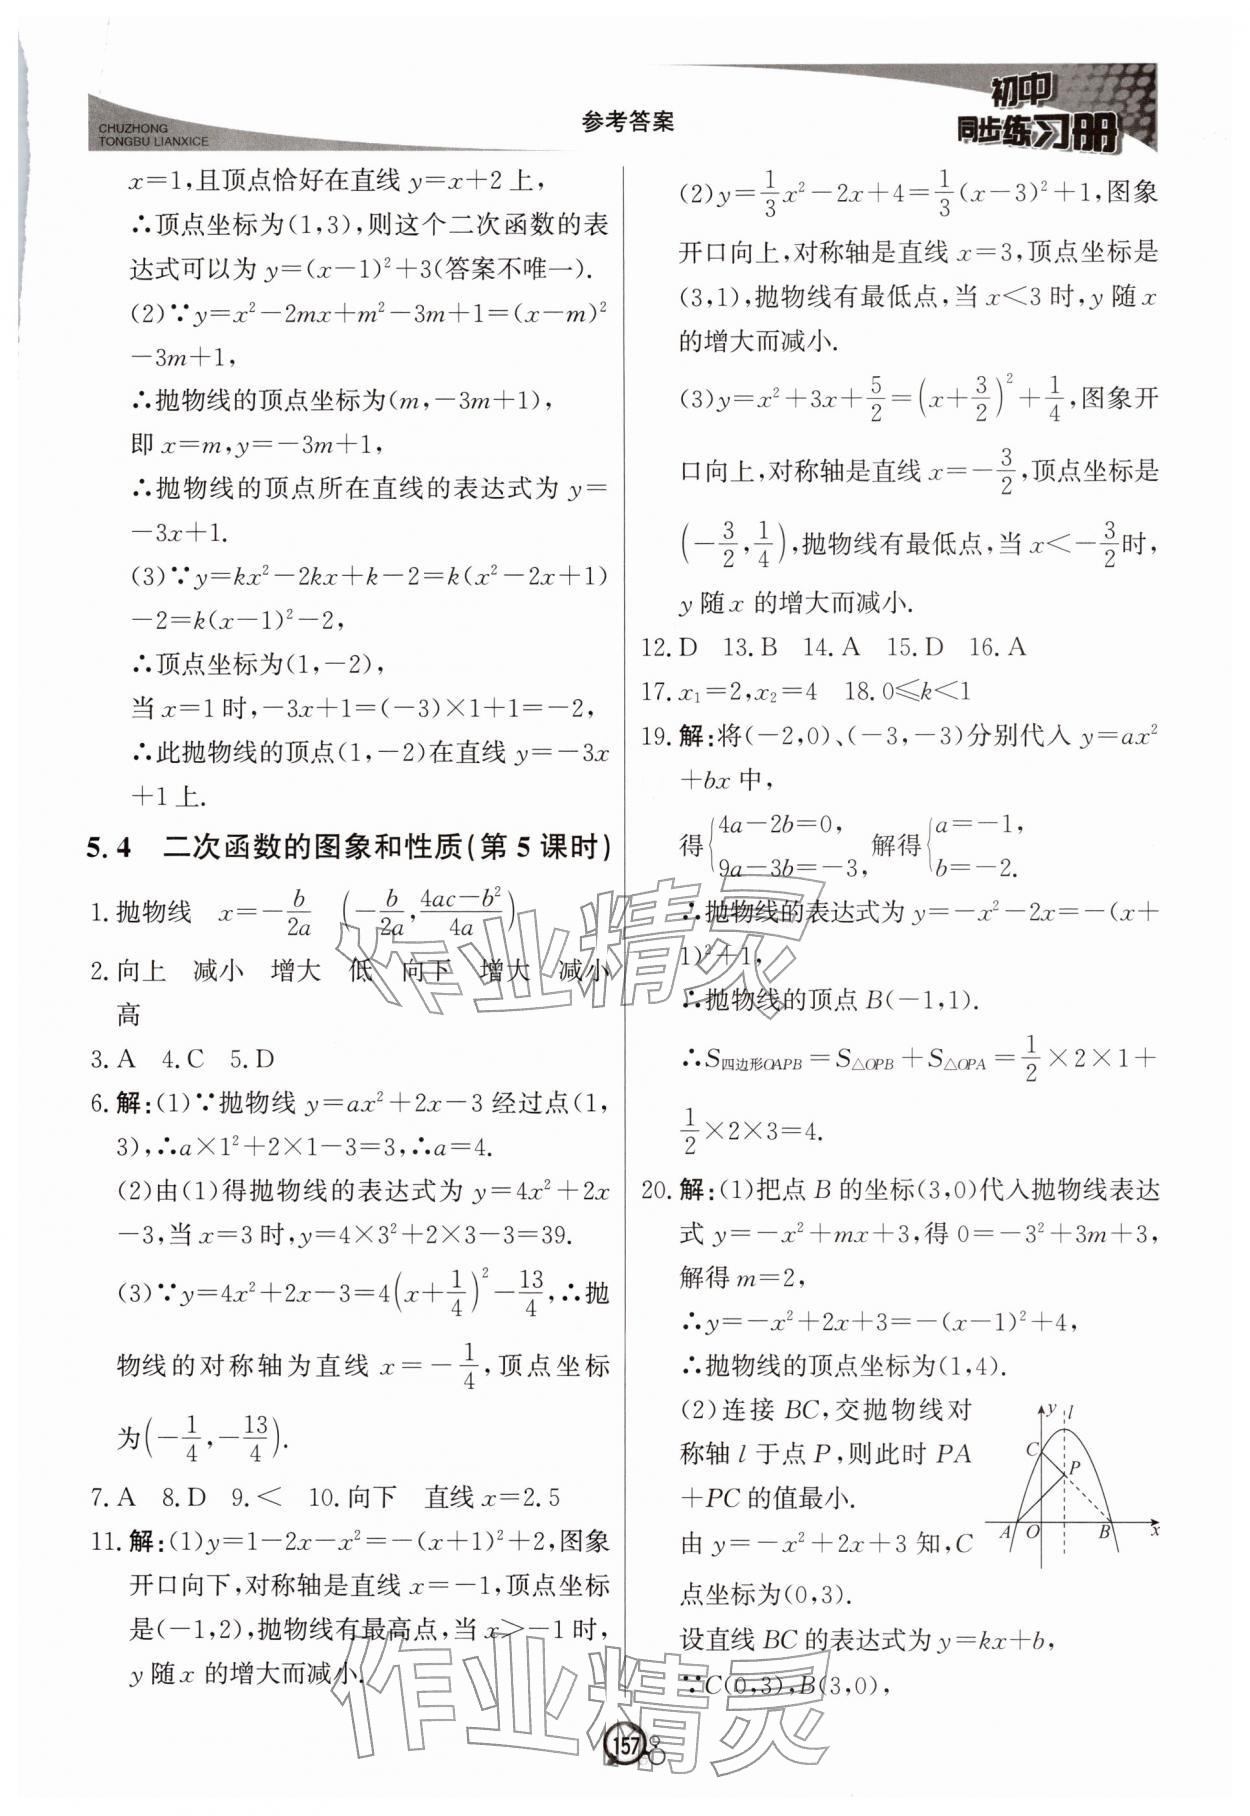 CHUZHONG
TONGBU LIANXICE
参考答案
初中
同步练习册
x=1,且顶点恰好在直线 y=x+2 上,
∴顶点坐标为(1,3),则这个二次函数的表
达式可以为 y=(x-1)²+3(答案不唯一).
(2)∵y=x²-2mx+m²-3m+1=(x-m)²
-3m+1,
∴抛物线的顶点坐标为(m,-3m+1),
即 x=m,y=-3m+1,
∴抛物线的顶点所在直线的表达式为 y=
-3x+1.
(3)∵y=kx²-2kx+k-2=k(x²-2x+1)
-2=k(x-1)²-2,
∴顶点坐标为(1,-2),
当 x=1 时,-3x+1=(-3)×1+1=-2,
∴此抛物线的顶点(1,-2)在直线 y=-3x
+1 上.
5.4 二次函数的图象和性质(第 5 课时)
1.抛物线 x=-b/2a (-b/2a,(4ac-b²)/4a)
2.向上 减小 增大 低 向下 增大 减小
高
3.A 4.C 5.D
6.解:(1)∵抛物线 y=ax²+2x-3 经过点(1,
3),∴a×1²+2×1-3=3,∴a=4.
(2)由(1)得抛物线的表达式为 y=4x²+2x
-3,当 x=3 时,y=4×3²+2×3-3=39.
(3)∵y=4x²+2x-3=4(x+1/4)²-13/4,∴抛
物线的对称轴为直线 x=-1/4,顶点坐标
为(-1/4,-13/4).
7.A 8.D 9.< 10.向下 直线 x=2.5
11.解:(1)y=1-2x-x²=-(x+1)²+2,图象
开口向下,对称轴是直线 x=-1,顶点坐标
是(-1,2),抛物线有最高点,当 x>-1 时,
y 随 x 的增大而减小.
(2)y=1/3x²-2x+4=1/3(x-3)²+1,图象
开口向上,对称轴是直线 x=3,顶点坐标是
(3,1),抛物线有最低点,当 x<3 时,y 随 x
的增大而减小.
(3)y=x²+3x+5/2=(x+3/2)²+1/4,图象开
口向上,对称轴是直线 x=-3/2,顶点坐标是
(-3/2,1/4),抛物线有最低点,当 x<-3/2时,
y 随 x 的增大而减小.
12.D 13.B 14.A 15.D 16.A
17.x₁=2,x₂=4 18.0≤k<1
19.解:将(-2,0)、(-3,-3)分别代入 y=ax²
+bx 中,
得{4a-2b=0, 9a-3b=-3, 解得{a=-1, b=-2.
∴抛物线的表达式为 y=-x²-2x=-(x+
1)²+1,
∴抛物线的顶点 B(-1,1).
∴S四边形OAPB=S△OPB+S△OPA=1/2×2×1+
1/2×2×3=4.
20.解:(1)把点 B 的坐标(3,0)代入抛物线表达
式 y=-x²+mx+3,得 0=-3²+3m+3,
解得 m=2,
∴y=-x²+2x+3=-(x-1)²+4,
∴抛物线的顶点坐标为(1,4).
(2)连接 BC,交抛物线对
称轴 l 于点 P,则此时 PA
+PC 的值最小.
由 y=-x²+2x+3 知,C
点坐标为(0,3).
设直线 BC 的表达式为 y=kx+b,
∵C(0,3),B(3,0),
y l
C
P
A O B x
作业精灵
作业精灵
157